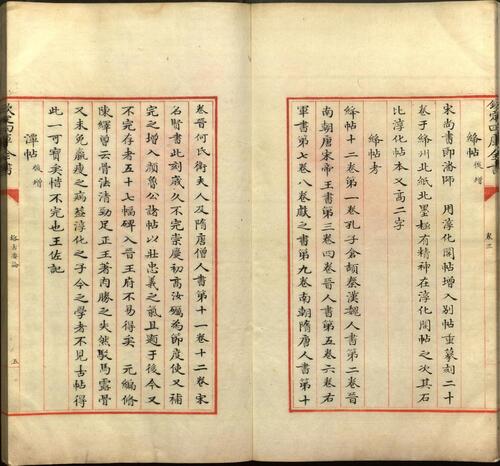 欽定四庫全書
卷三
絳帖後增
宋尚書即潘師 用淳化閣帖增入别帖重摹刻二十
卷于絳州北紙北墨極有精神在淳化閣帖之次其石
比淳化帖本又高二字
絳帖考
絳帖十二卷第一卷孔子倉頡秦漢魏人書第二卷晉
南朝唐宋帝王書第三卷四卷晉人書第五卷六卷右
軍書第七卷八卷獻之書第九卷南朝隋唐人書第十
卷晉何氏衛夫人及隋唐僧人書第十一卷十二卷宋
名賢書此刻歲久不完崇慶初高汝礪為節度使又補
完之增入顔魯公諸帖以壯忠義之氣且題于後今又
不完存者五十七幅碑入晉王府不易得矣 元編修
陳繹曽云骨法清勁足正王著肉勝之失然駁馬露骨
又未免羸瘦之病葢淳化之子今之學者不見古帖得
此一可寳矣惜不完也王佐記
潭帖後增
欽定四庫全書
格古要論
五